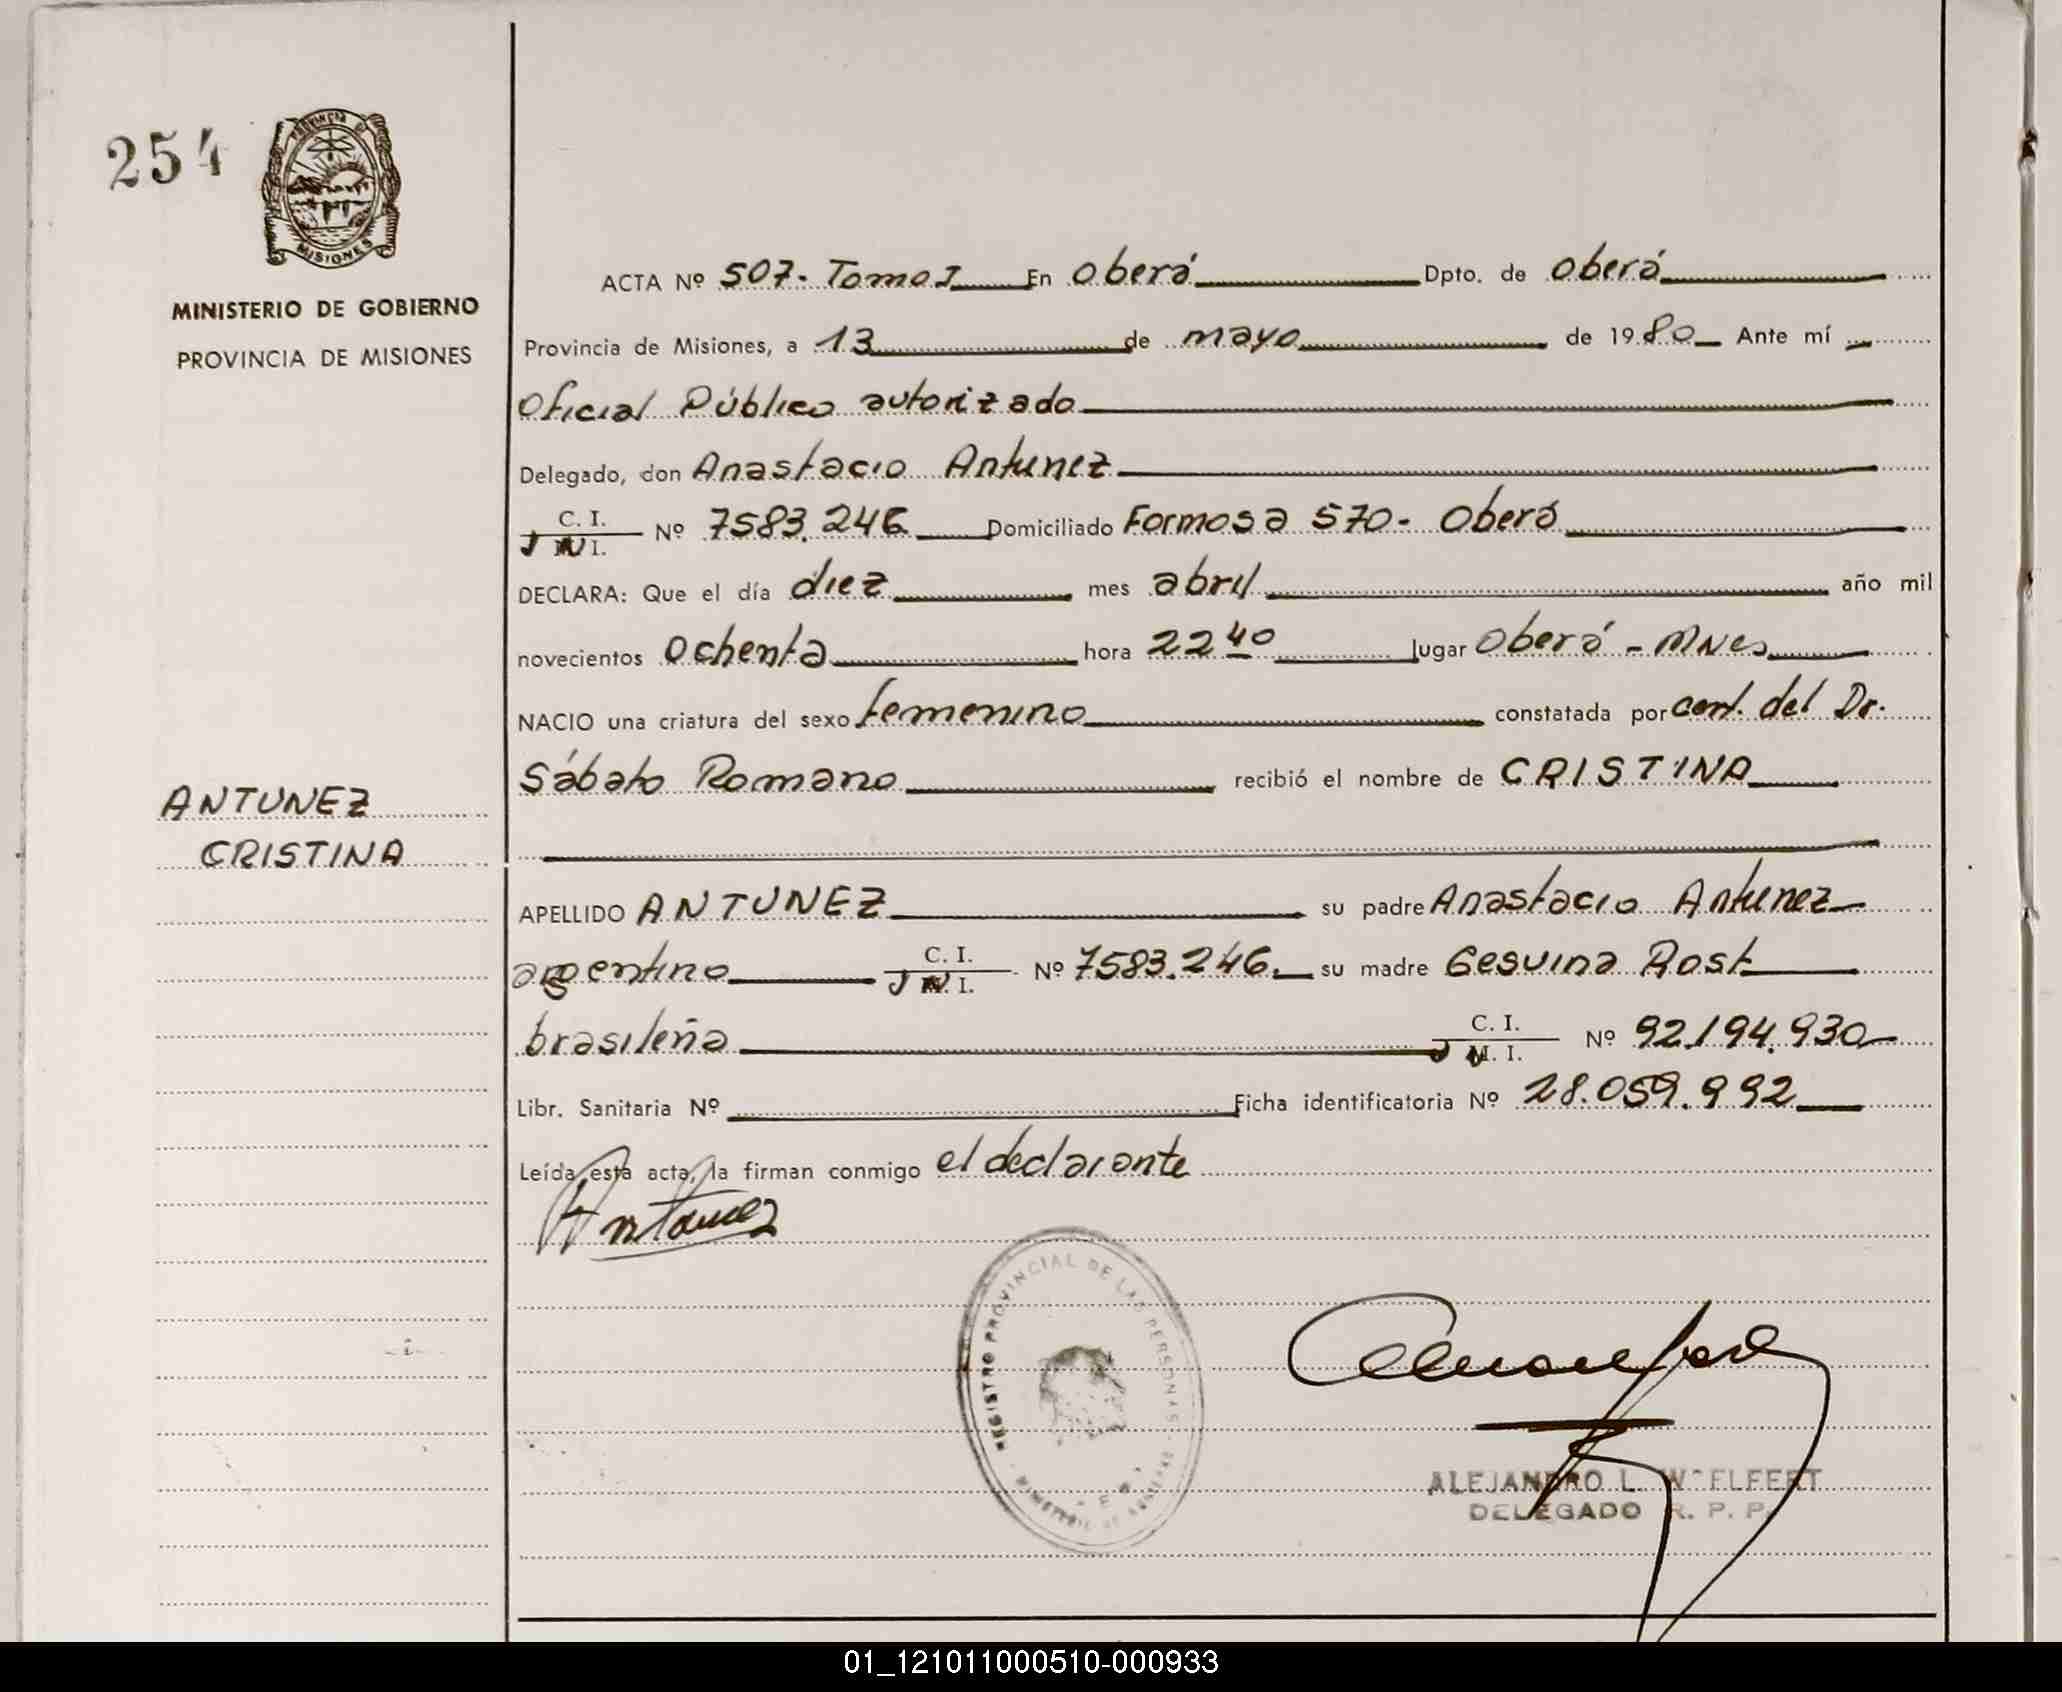 254
PROVINCIA DE
MISIONES
MINISTERIO DE GOBIERNO
PROVINCIA DE MISIONES
ACTA Nº 507- Tomo I En Oberá Dpto. de Oberá
Provincia de Misiones, a 13 de mayo de 1980 Ante mí
Oficial Público autorizado
Delegado, don Anastacio Antunez
C. I.
Nº 7583.246 Domiciliado Formosa 570- Oberá
DECLARA: Que el día diez mes abril año mil
novecientos ochenta hora 22 40 lugar Oberá - Mnes
NACIO una criatura del sexo femenino constatada por cert. del Dr.
Sábato Romano recibió el nombre de CRISTINA
ANTUNEZ
CRISTINA
APELLIDO ANTUNEZ su padre Anastacio Antunez
argentino C. I. Nº 7583.246. su madre Gesuina Rost
brasileña C. I. Nº 92.194.930
Libr. Sanitaria Nº Ficha identificatoria Nº 28.059.992
Leída esta acta, la firman conmigo el declarante
Antunez
REGISTRO PROVINCIAL DE LAS PERSONAS
ALEJANDRO L.
DELEGADO R. P. P.
01_121011000510-000933